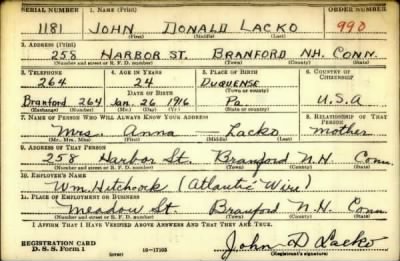 SERIAL NUMBER 1. NAME (Print) ORDER NUMBER
1181 JOHN DONALD LACKO 990
(First) (Middle) (Last)
2. ADDRESS (Print)
258 HARBOR ST. BRANFORD NH. CONN.
(Number and street or R. F. D. number) (Town) (County) (State)
3. TELEPHONE 4. AGE IN YEARS 5. PLACE OF BIRTH 6. COUNTRY OF CITIZENSHIP
264 24 DUQUENSE
DATE OF BIRTH (Town or county)
Branford 264 Jan. 26 1916 Pa. U.S.A
(Exchange) (Number) (Mo.) (Day) (Yr.) (State or country)
7. NAME OF PERSON WHO WILL ALWAYS KNOW YOUR ADDRESS 8. RELATIONSHIP OF THAT PERSON
Mrs. Anna — Lacko mother
(Mr., Mrs., Miss) (First) (Middle) (Last)
9. ADDRESS OF THAT PERSON
258 Harbor St. Branford N.H. Conn.
(Number and street or R. F. D. number) (Town) (County) (State)
10. EMPLOYER'S NAME
Wm. Hitchcock (Atlantic Wire)
11. PLACE OF EMPLOYMENT OR BUSINESS
Meadow St. Branford N.H. Conn
(Number and street or R. F. D. number) (Town) (County) (State)
I AFFIRM THAT I HAVE VERIFIED ABOVE ANSWERS AND THAT THEY ARE TRUE.
REGISTRATION CARD
D. S. S. Form 1 (over) 16—17105 John D Lacko
(Registrant's signature)